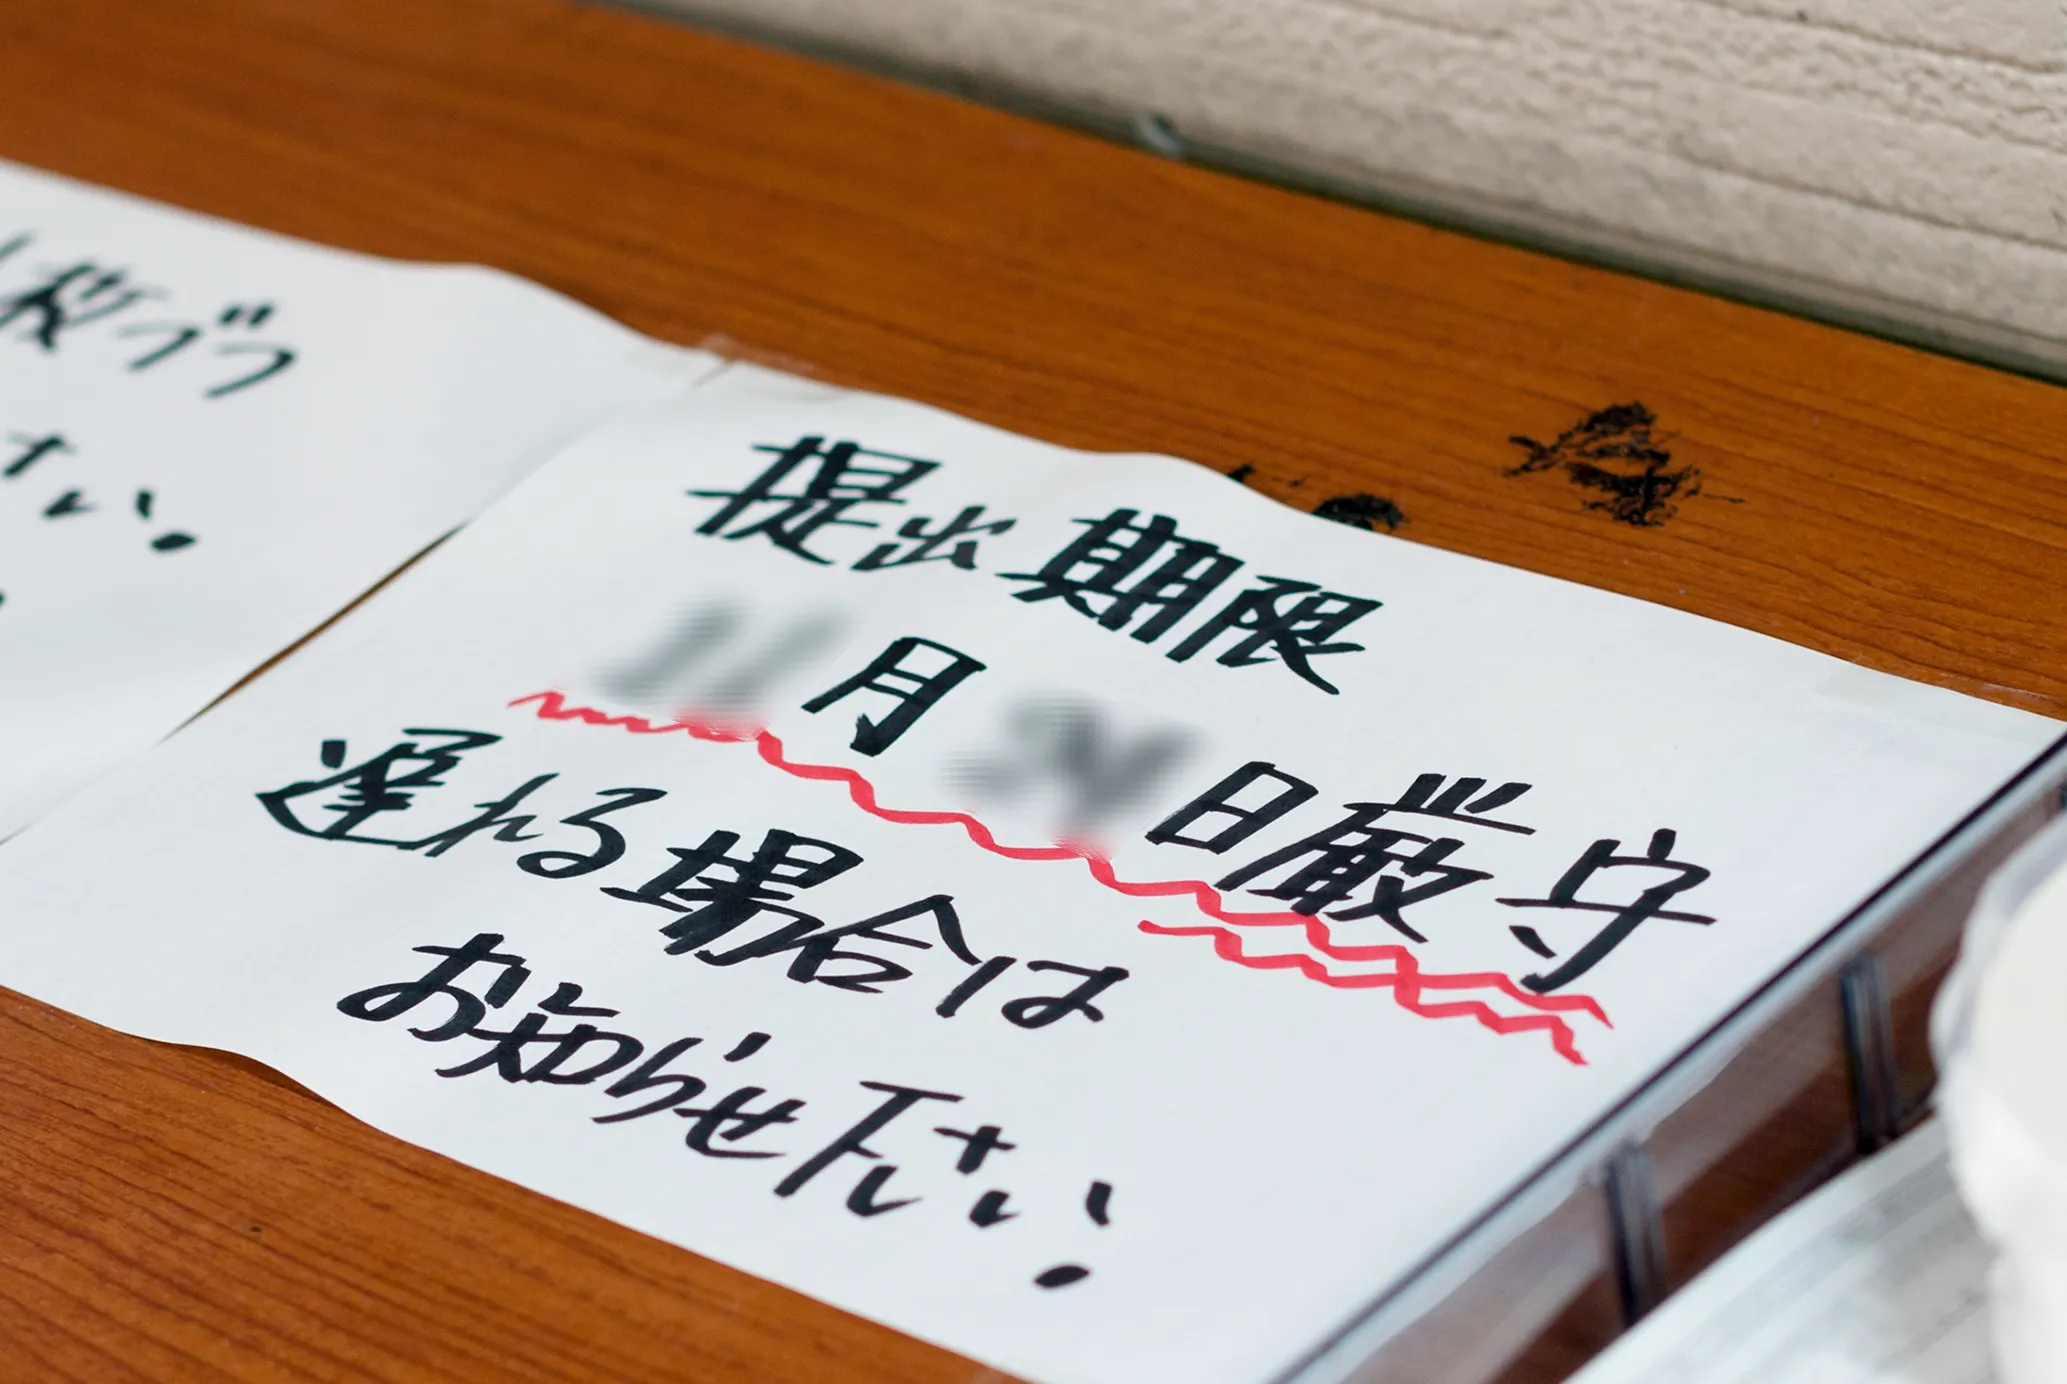 枚づつ
さい。
提出期限
月 日厳守
遅れる場合は
お知らせ下さい。